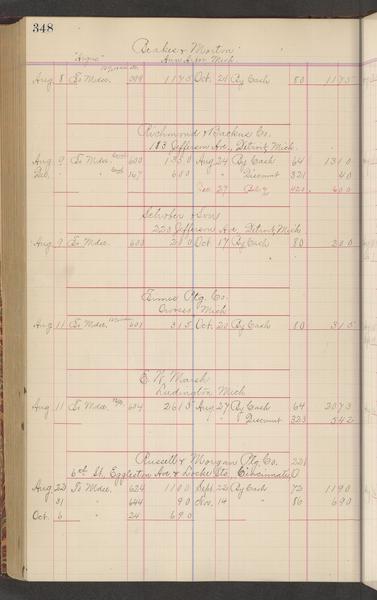 348
Beakes & Morton
"Argus" Ann Arbor Mich.
Aug 8 To Mdse. 599 1175 Oct. 20 By Cash 80 1175
Richmond & Backus Co.
183 Jefferson Ave., Detroit Mich.
Aug 9 To Mdse. 600 1350 Aug 24 By Cash 64 1310
Feb. " 167 600 " Discount 321 40
Dec. 27 420 600
Schober & Sons
220 Jefferson Ave, Detroit Mich
Aug 9 To Mdse. 600 200 Oct 17 By Cash 80 200
Times Ptg. Co.
Owosso Mich
Aug 11 To Mdse. 601 315 Oct. 20 By Cash 80 315
E. N. Marsh
Ludington Mich
Aug 11 To Mdse. 604 2615 Aug 27 By Cash 64 2073
" Discount 323 542
Russell & Morgan Ptg Co. 221
6th St. Eggleston Ave & Lock Sts Cincinnati, O.
Aug 22 To Mdse. 624 1100 Sept. 22 By Cash 72 1190
31 " 644 90 Nov. 14 " 86 690
Oct. 6 " 24 690